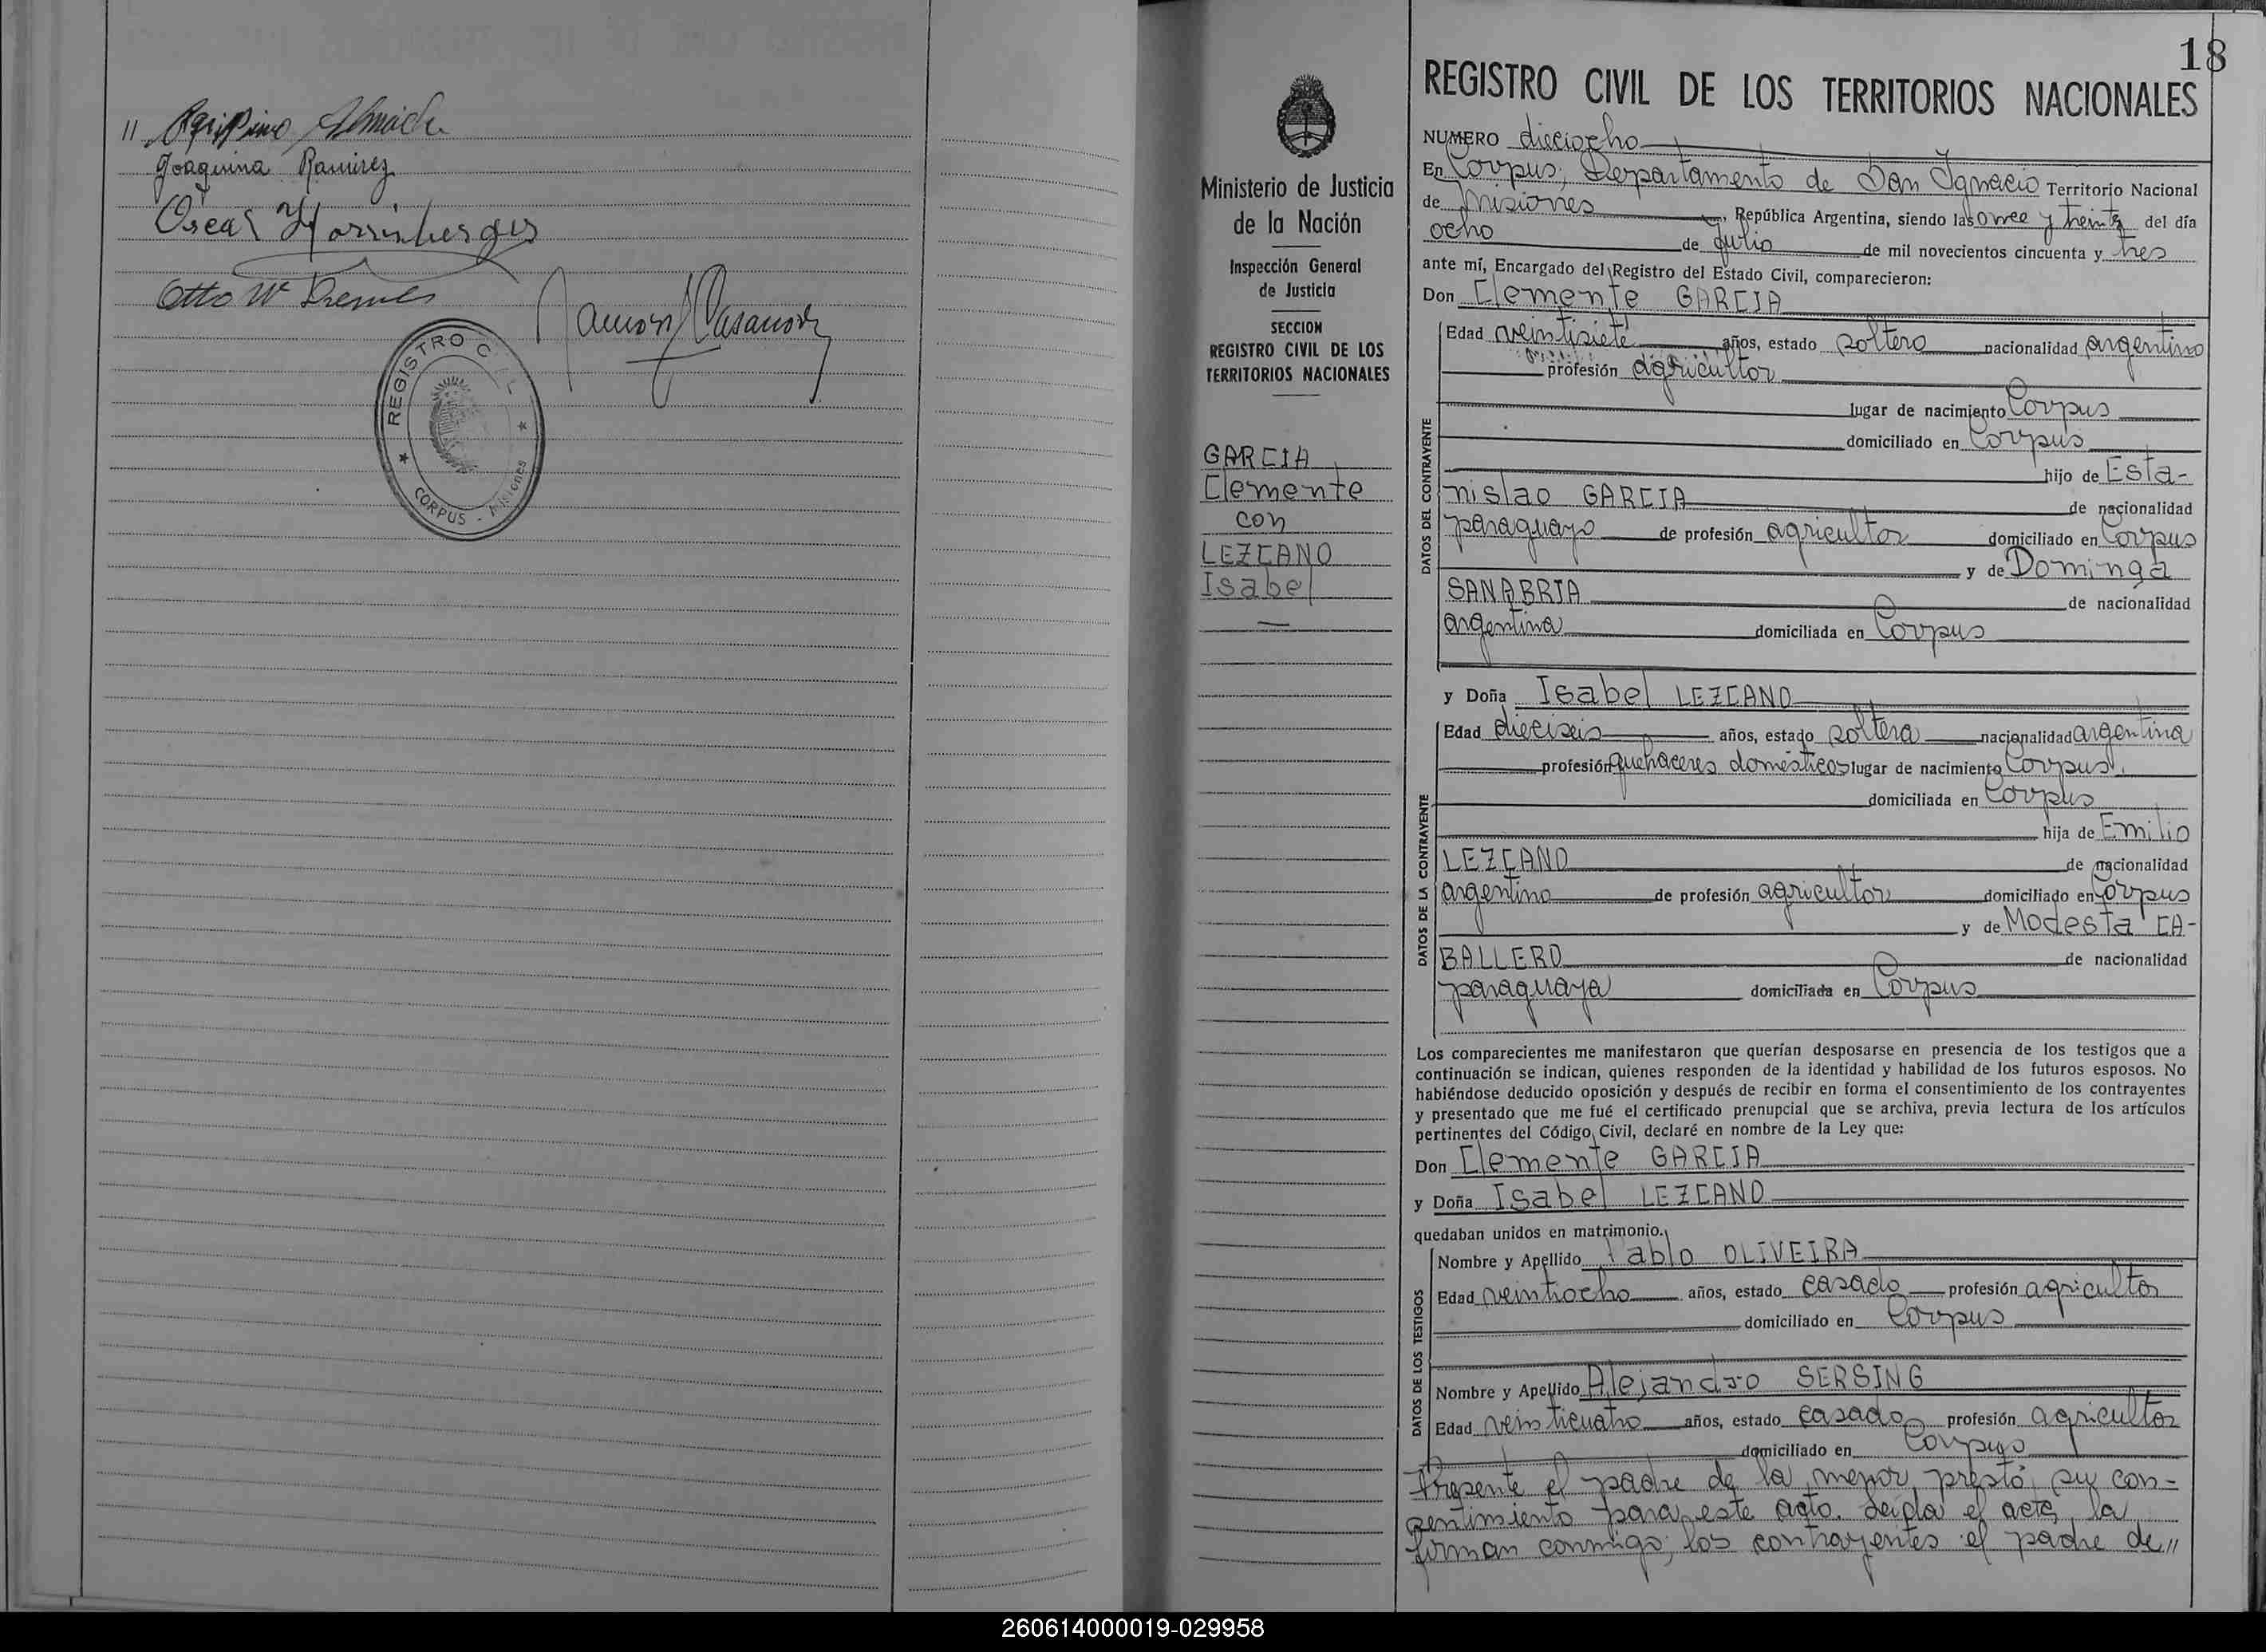 Joaquina Ramirez
Oscar
Otto W
Ramon Casanova
REGISTRO CIVIL
CORPUS - Misiones
18
Ministerio de Justicia
de la Nación
Inspección General
de Justicia
SECCION
REGISTRO CIVIL DE LOS
TERRITORIOS NACIONALES
GARCIA
Clemente
con
LEZCANO
Isabel
REGISTRO CIVIL DE LOS TERRITORIOS NACIONALES
NUMERO dieciocho
En Corpus, Departamento de San Ignacio Territorio Nacional
de Misiones, República Argentina, siendo las once y treinta del día
ocho de Julio de mil novecientos cincuenta y tres
ante mí, Encargado del Registro del Estado Civil, comparecieron:
Don Clemente GARCIA
DATOS DEL CONTRAYENTE
Edad veintisiete años, estado soltero nacionalidad argentino
profesión agricultor
lugar de nacimiento Corpus
domiciliado en Corpus
hijo de Esta-
nislao GARCIA de nacionalidad
paraguayo de profesión agricultor domiciliado en Corpus
y de Dominga
SANABRIA de nacionalidad
argentina domiciliada en Corpus
y Doña Isabel LEZCANO
DATOS DE LA CONTRAYENTE
Edad dieciseis años, estado soltera nacionalidad argentina
profesión quehaceres domésticos lugar de nacimiento Corpus
domiciliada en Corpus
hija de Emilio
LEZCANO de nacionalidad
argentino de profesión agricultor domiciliado en Corpus
y de Modesta CA-
BALLERO de nacionalidad
paraguaya domiciliada en Corpus
Los comparecientes me manifestaron que querían desposarse en presencia de los testigos que a
continuación se indican, quienes responden de la identidad y habilidad de los futuros esposos. No
habiéndose deducido oposición y después de recibir en forma el consentimiento de los contrayentes
y presentado que me fué el certificado prenupcial que se archiva, previa lectura de los artículos
pertinentes del Código Civil, declaré en nombre de la Ley que:
Don Clemente GARCIA
y Doña Isabel LEZCANO
quedaban unidos en matrimonio.
DATOS DE LOS TESTIGOS
Nombre y Apellido Pablo OLIVEIRA
Edad veintiocho años, estado casado profesión agricultor
domiciliado en Corpus
Nombre y Apellido Alejandro SERSING
Edad veinticuatro años, estado casado profesión agricultor
domiciliado en Corpus
Presente el padre de la menor, prestó su con-
sentimiento para este acto. Leida el acta, la
firman conmigo, los contrayentes el padre de //
260614000019-029958